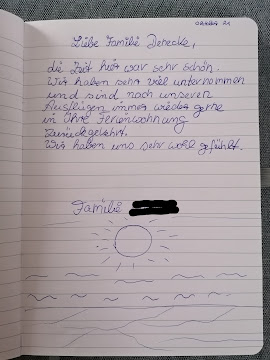 Liebe Familie Denecke,
die Zeit hier war sehr schön.
Wir haben sehr viel unternommen
und sind nach unseren
Ausflügen immer wieder gerne
in Ihre Ferienwohnung
zurückgekehrt.
Wir haben uns sehr wohl gefühlt.
Familie